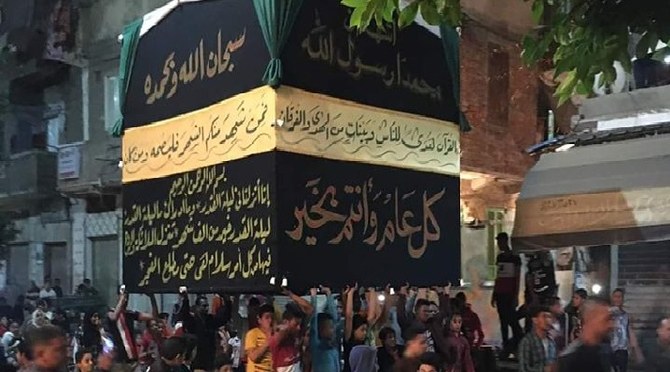 سبحان الله وبحمده
محمدا رسول الله
فمن شهد منكم الشهر فليصمه ومن كان
القرآن هدى للناس وبينات من الهدى والفرقان
بسم الله الرحمن الرحيم
إنا أنزلناه فى ليلة القدر وما أدراك ما ليلة القدر
ليلة القدر خير من ألف شهر تنزل الملائكة والروح
فيها من كل أمر سلام هى حتى مطلع الفجر
كل عام وأنتم بخير